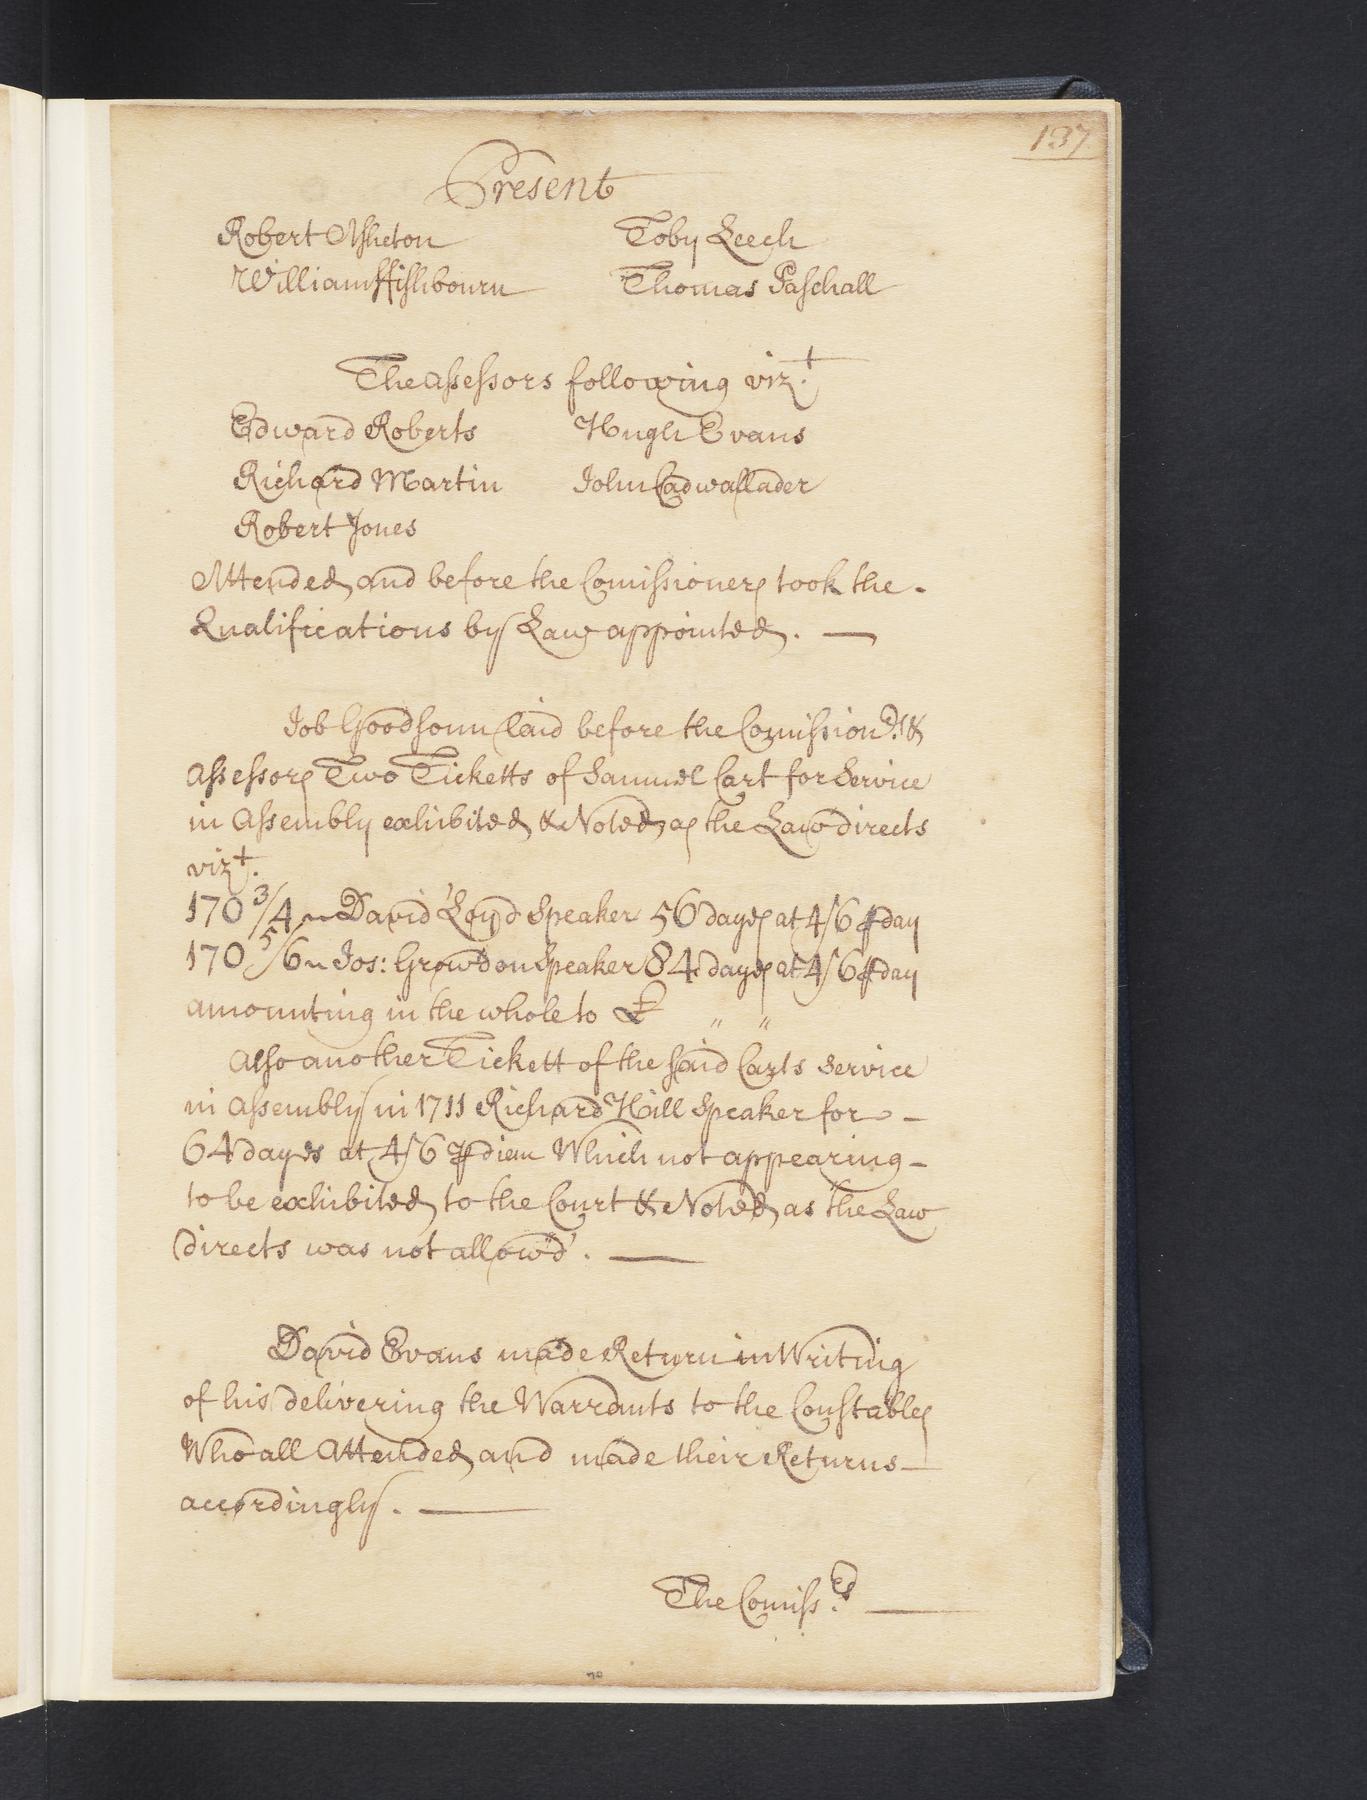 137
Present
Robert Asheton Toby Leech
William ffishbourn Thomas Paschall
The assessors following vizt.
Edward Roberts Hugh Evans
Richard Martin John Cadwallader
Robert Jones
Attended, and before the Comissioners took the
Qualifications by Law appointed. —
Job Goodsonn laid before the Comissionrs. &
assessors Two Ticketts of Samuel Cart for Service
in Assembly exhibited & Noted, as the Law directs
vizt.
170 3/4 ~ David Loyd Speaker 56 dayes at 4/6 ⅌ day
170 5/6 ~ Jos: Growdon Speaker 84 dayes at 4/6 ⅌ day
amounting in the whole to £ " "
Also another Tickett of the said Carts Service
in Assembly in 1711 Richard Hill Speaker for —
64 dayes at 4/6 ⅌ diem Which not appearing —
to be exhibited, to the Court & Noted, as the Law
directs was not allow'd. —
David Evans made Return in Writing
of his delivering the Warrants to the Constables
Who all Attended, and made their Returns —
accordingly. —
The Comissrs. —
70